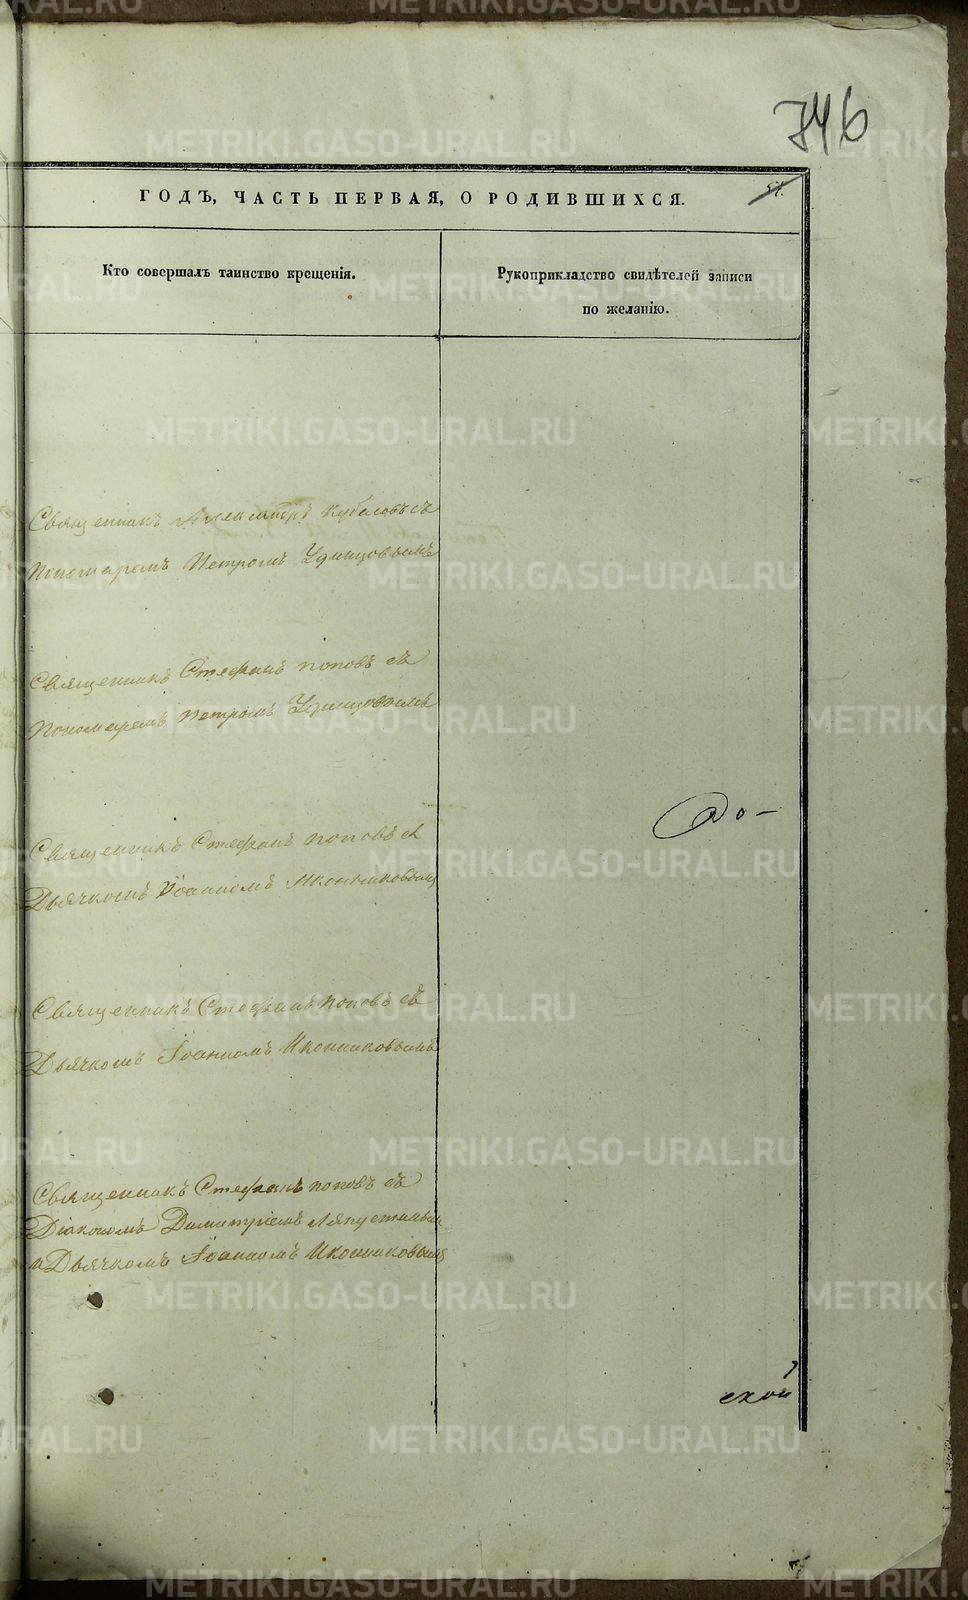 746
51.
ГОДЪ, ЧАСТЬ ПЕРВАЯ, О РОДИВШИХСЯ.
Кто совершалъ таинство крещенія.
Рукоприкладство свидѣтелей записи
по желанію.
Священникъ съ
Пономаремъ Петромъ Удинцовымъ
Священникъ Стефанъ Поповъ съ
Пономаремъ Петромъ Удинцовымъ
Священникъ Стефанъ Поповъ съ
Дьячкомъ Іоанномъ Иконниковымъ
Священникъ Стефанъ Поповъ съ
Дьячкомъ Іоанномъ Иконниковымъ
Священникъ Стефанъ Поповъ съ
Діакономъ Димитріемъ
и Дьячкомъ Іоанномъ Иконниковымъ
ской
METRIKI.GASO-URAL.RU